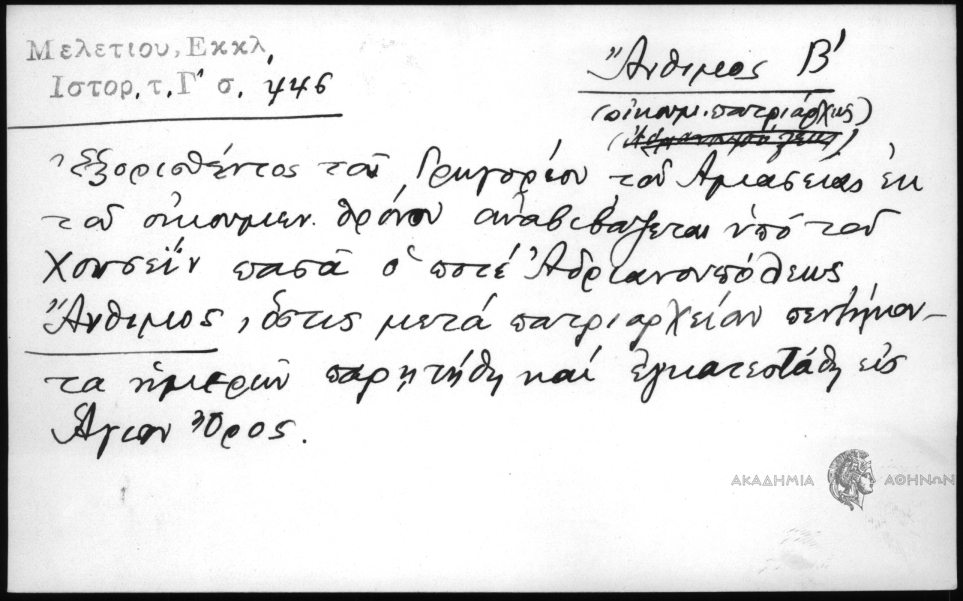 Μελετίου, Εκκλ,
Ιστορ. τ. Γ' σ. 446
Ἄνθιμος Β'
(οἰκουμ. πατριάρχης)
Ἐξορισθέντος τοῦ Γρηγορίου τοῦ Ἀμασείας ἐκ
τοῦ οἰκουμεν. θρόνου ἀναβιβάζεται ὑπό τοῦ
Χουσεΐν πασᾶ ὁ ποτέ Ἀδριανουπόλεως
Ἄνθιμος, ὅστις μετά πατριαρχείαν πεντήκον-
τα ἡμερῶν παρητήθη καί ἐγκατεστάθη εἰς
Ἅγιον Ὄρος.
ΑΚΑΔΗΜΙΑ ΑΘΗΝΩΝ